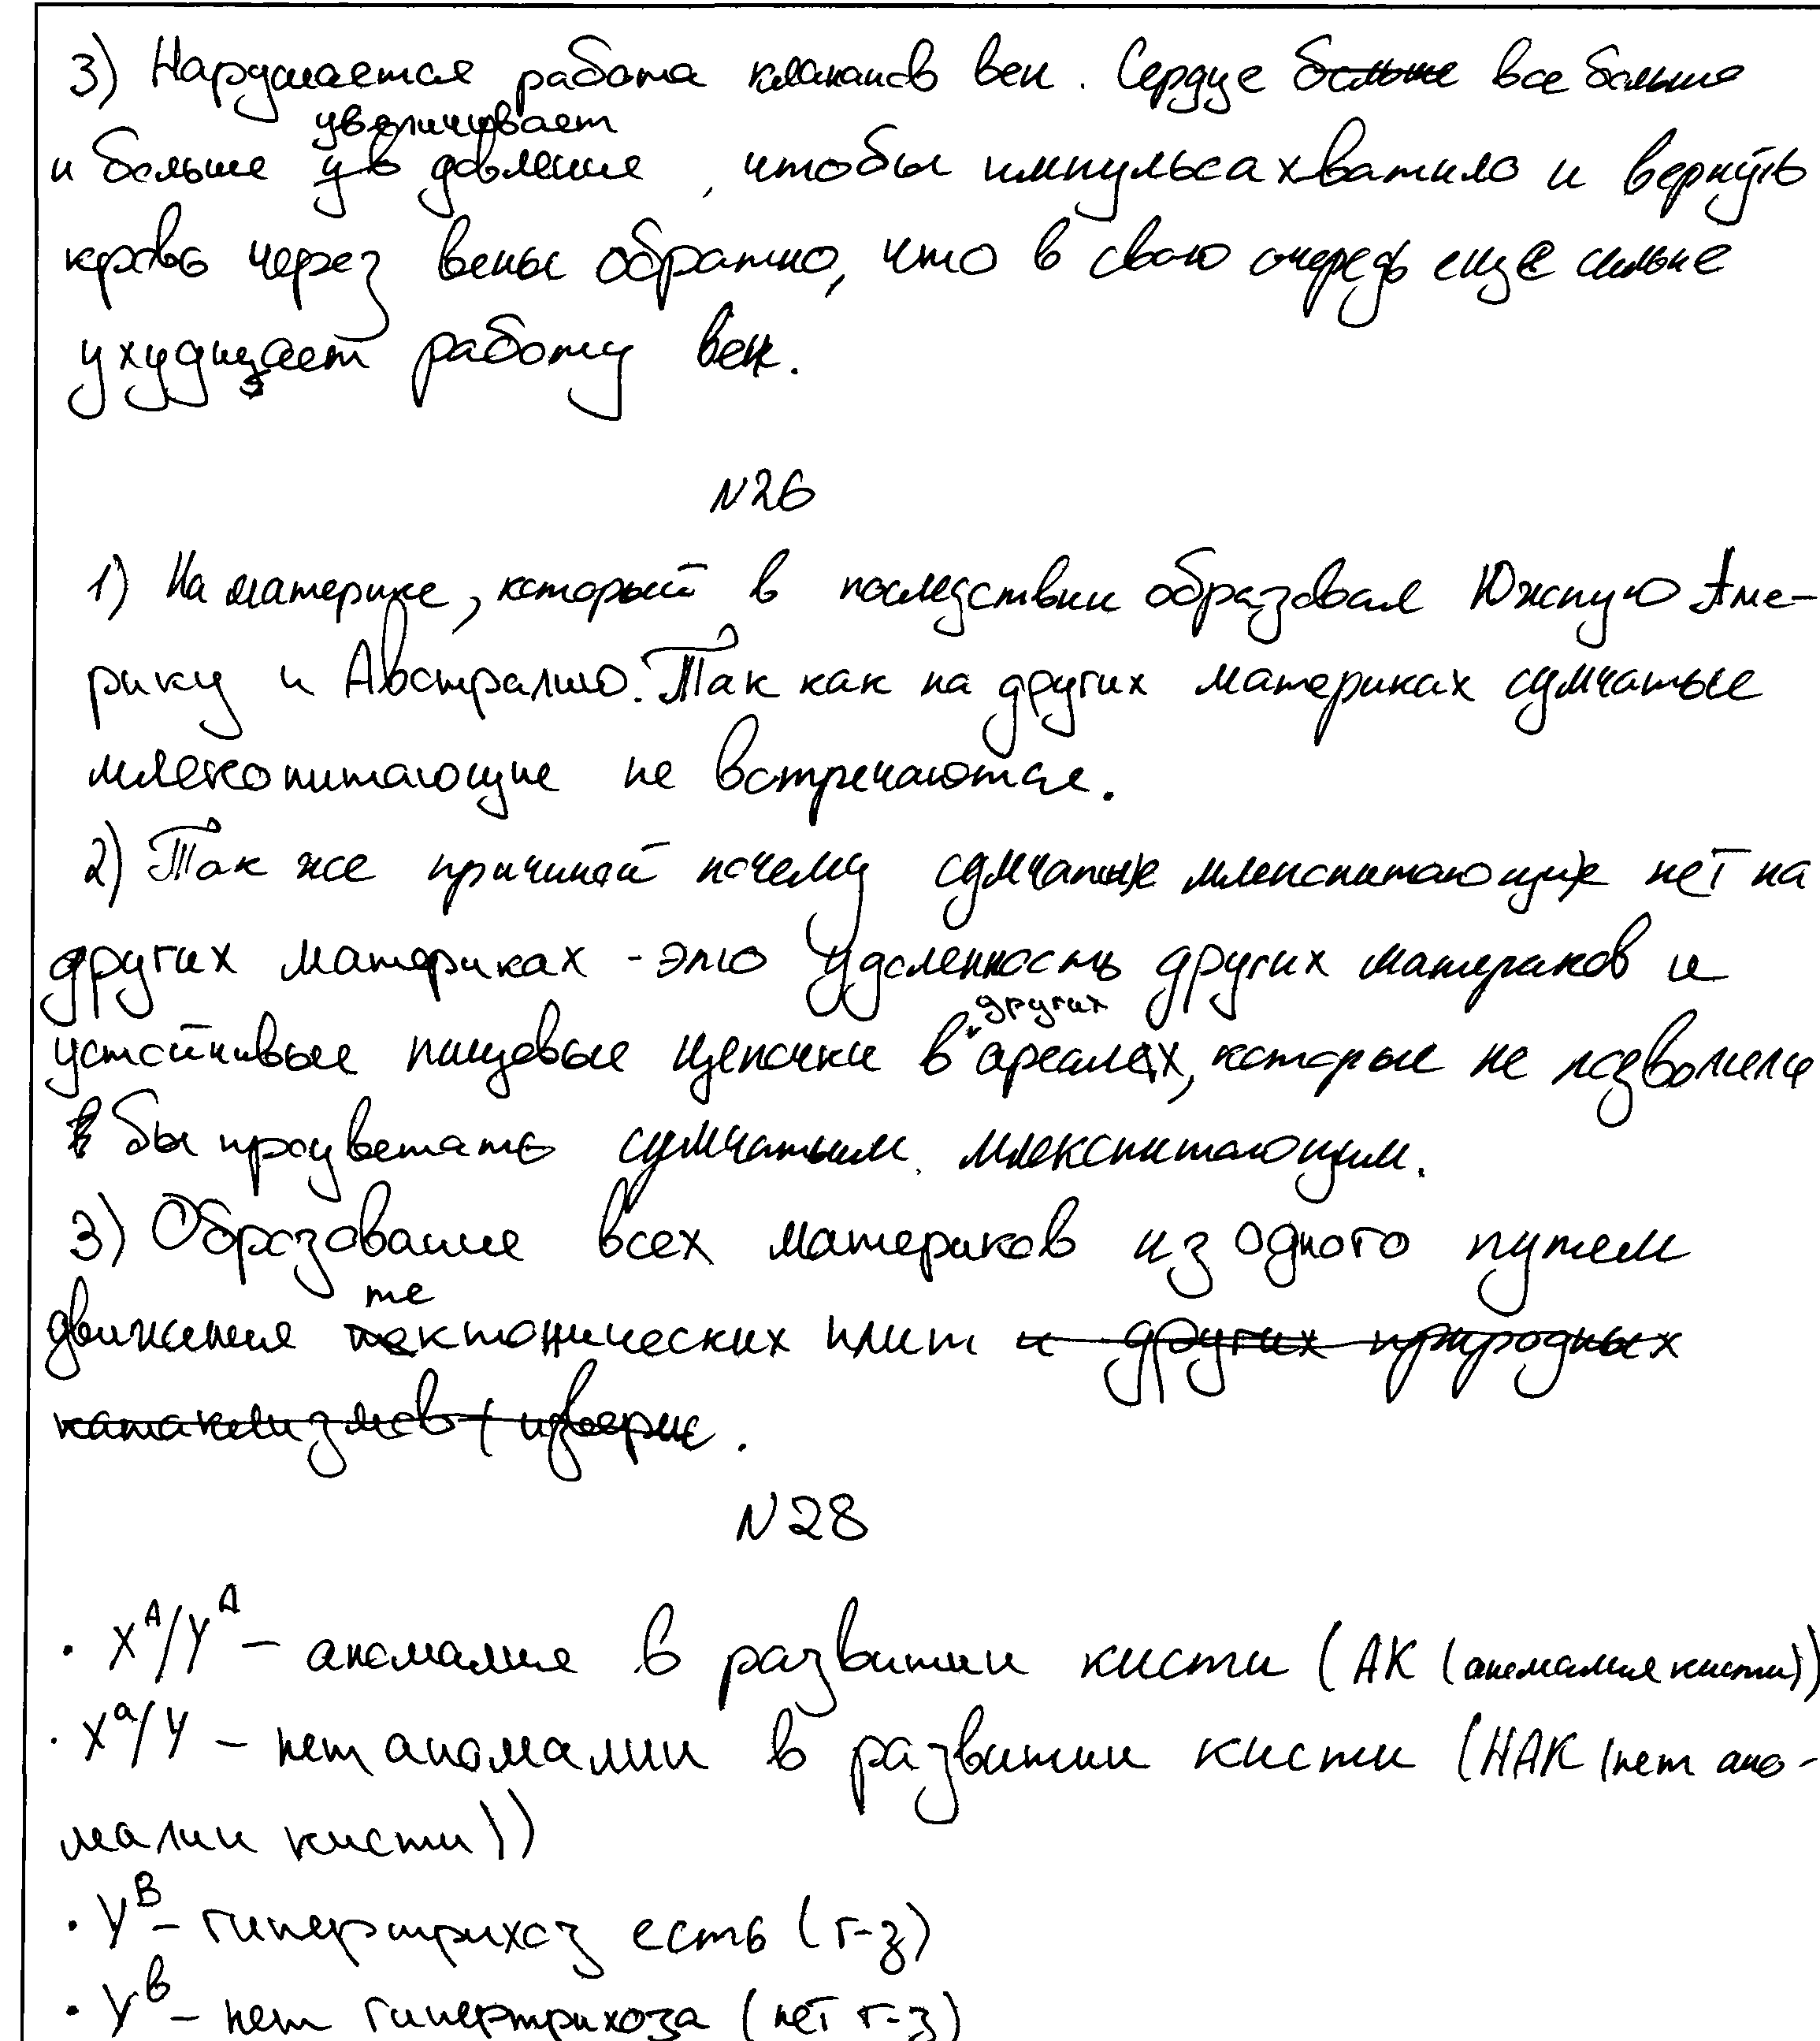 3) Нарушается работа клапанов вен. Сердце больше все больше
увеличивает
и больше ув давление, чтобы импульса хватило и вернуть
кровь через вены обратно, что в свою очередь еще сильне
ухудщает работу вен.
N26
1) На материке, который в последствии образовал Южную Аме-
рику и Австралию. Так как на других материках сумчатые
млекопитающие не встречаются.
2) Так же причиной почему сумчатые млекопитающих нет на
других материках - это удаленность других материков и
других
устойчивые пищевые цепочки в ареалах, которые не позволили
бы процветать сумчатым млекопитающим.
3) Образование всех материков из одного путем
те
движения тектонических плит и других природных
катаклизмов .
N28
· X^A/Y^A – аномалия в развитии кисти (АК (аномалия кисти))
· X^a/Y – нет аномалии в развитии кисти (НАК (нет ано-
малии кисти))
· Y^B – гипертрихоз есть (г-з)
· Y^b – нет гипертрихоза (нет г-з)